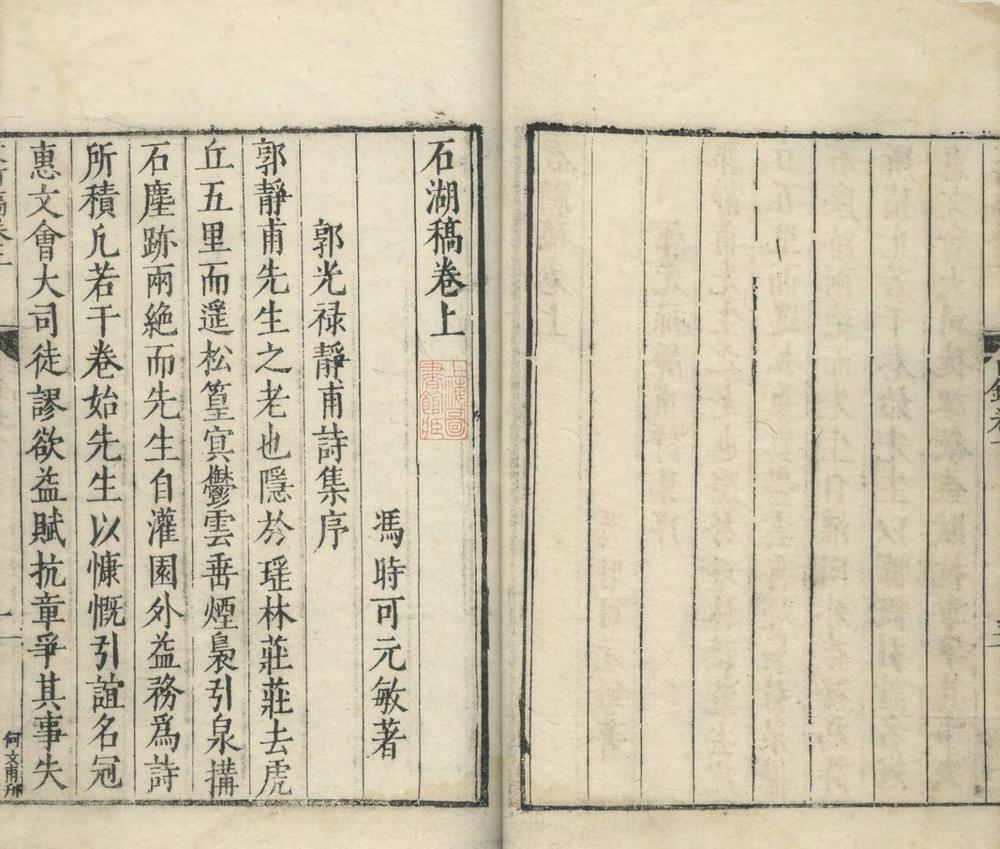 石湖稿卷上
上海圖書館藏
馮時可元敏著
郭光祿靜甫詩集序
郭靜甫先生之老也隱於瑶林莊莊去虎
丘五里而遥松篁㝠鬱雲垂煙裊引泉搆
石塵跡兩絶而先生自灌園外益務爲詩
所積凢若干卷始先生以慷慨引誼名冠
惠文會大司徒謬欲益賦抗章爭其事失